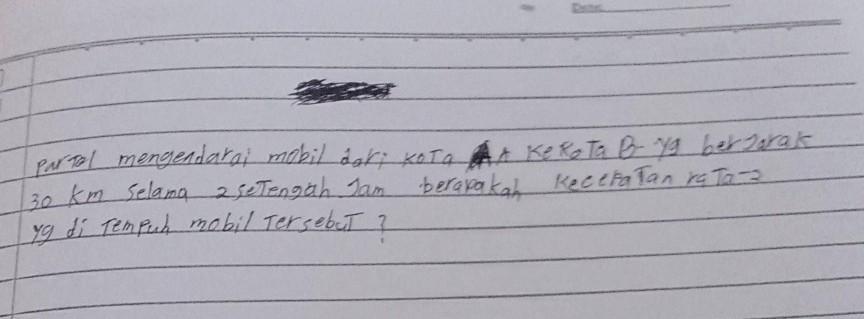 Date:
Partal mengendarai mobil dari kota A ke kota B yg berjarak
30 km selama 2 setengah Jam berapakah kecepatan rata-2
yg di tempuh mobil tersebut ?